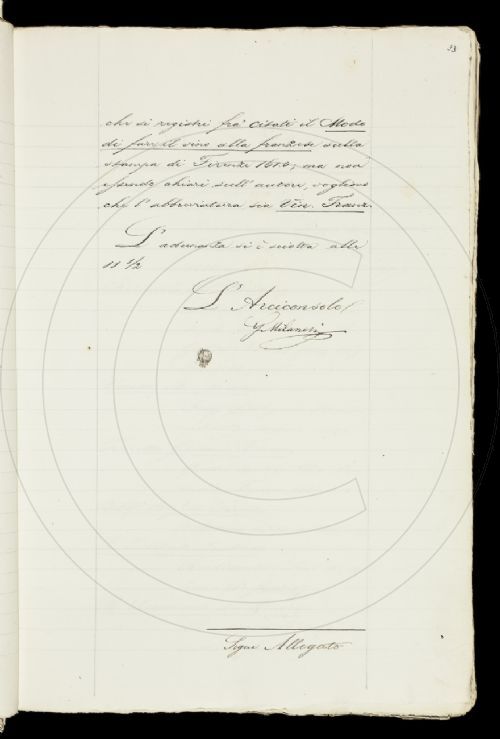 23
che si registri fra' citati il Modo
di fare il vino alla franzese nella
stampa di Firenze 1610; ma non
essendo chiari sull' autore, vogliono
che l' abbreviatura sia Vin. Franz.
L' adunanza si è sciolta alle
11 1/2
L' Arciconsolo
G Milanesi
Segue Allegato